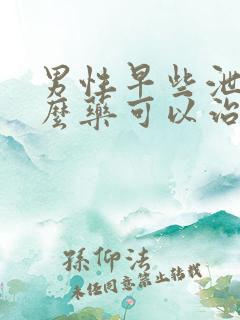 男性早些泄
麼藥可以治
孫仰法
未经同意禁止转载